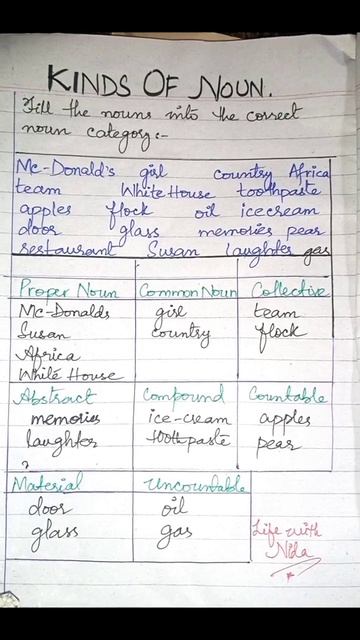 KINDS OF NOUN.
Fill the nouns into the correct
noun category:-
Mc-Donald's girl country Africa
team White House toothpaste
apples flock oil icecream
door glass memories pear
restaurant Susan laughter gas
Proper Noun Common Noun Collective
McDonalds girl team
Susan country flock
Africa
White House
Abstract Compound Countable
memories ice-cream apples
laughter toothpaste pear
?
Material Uncountable
door oil
glass gas
Life with
Nida